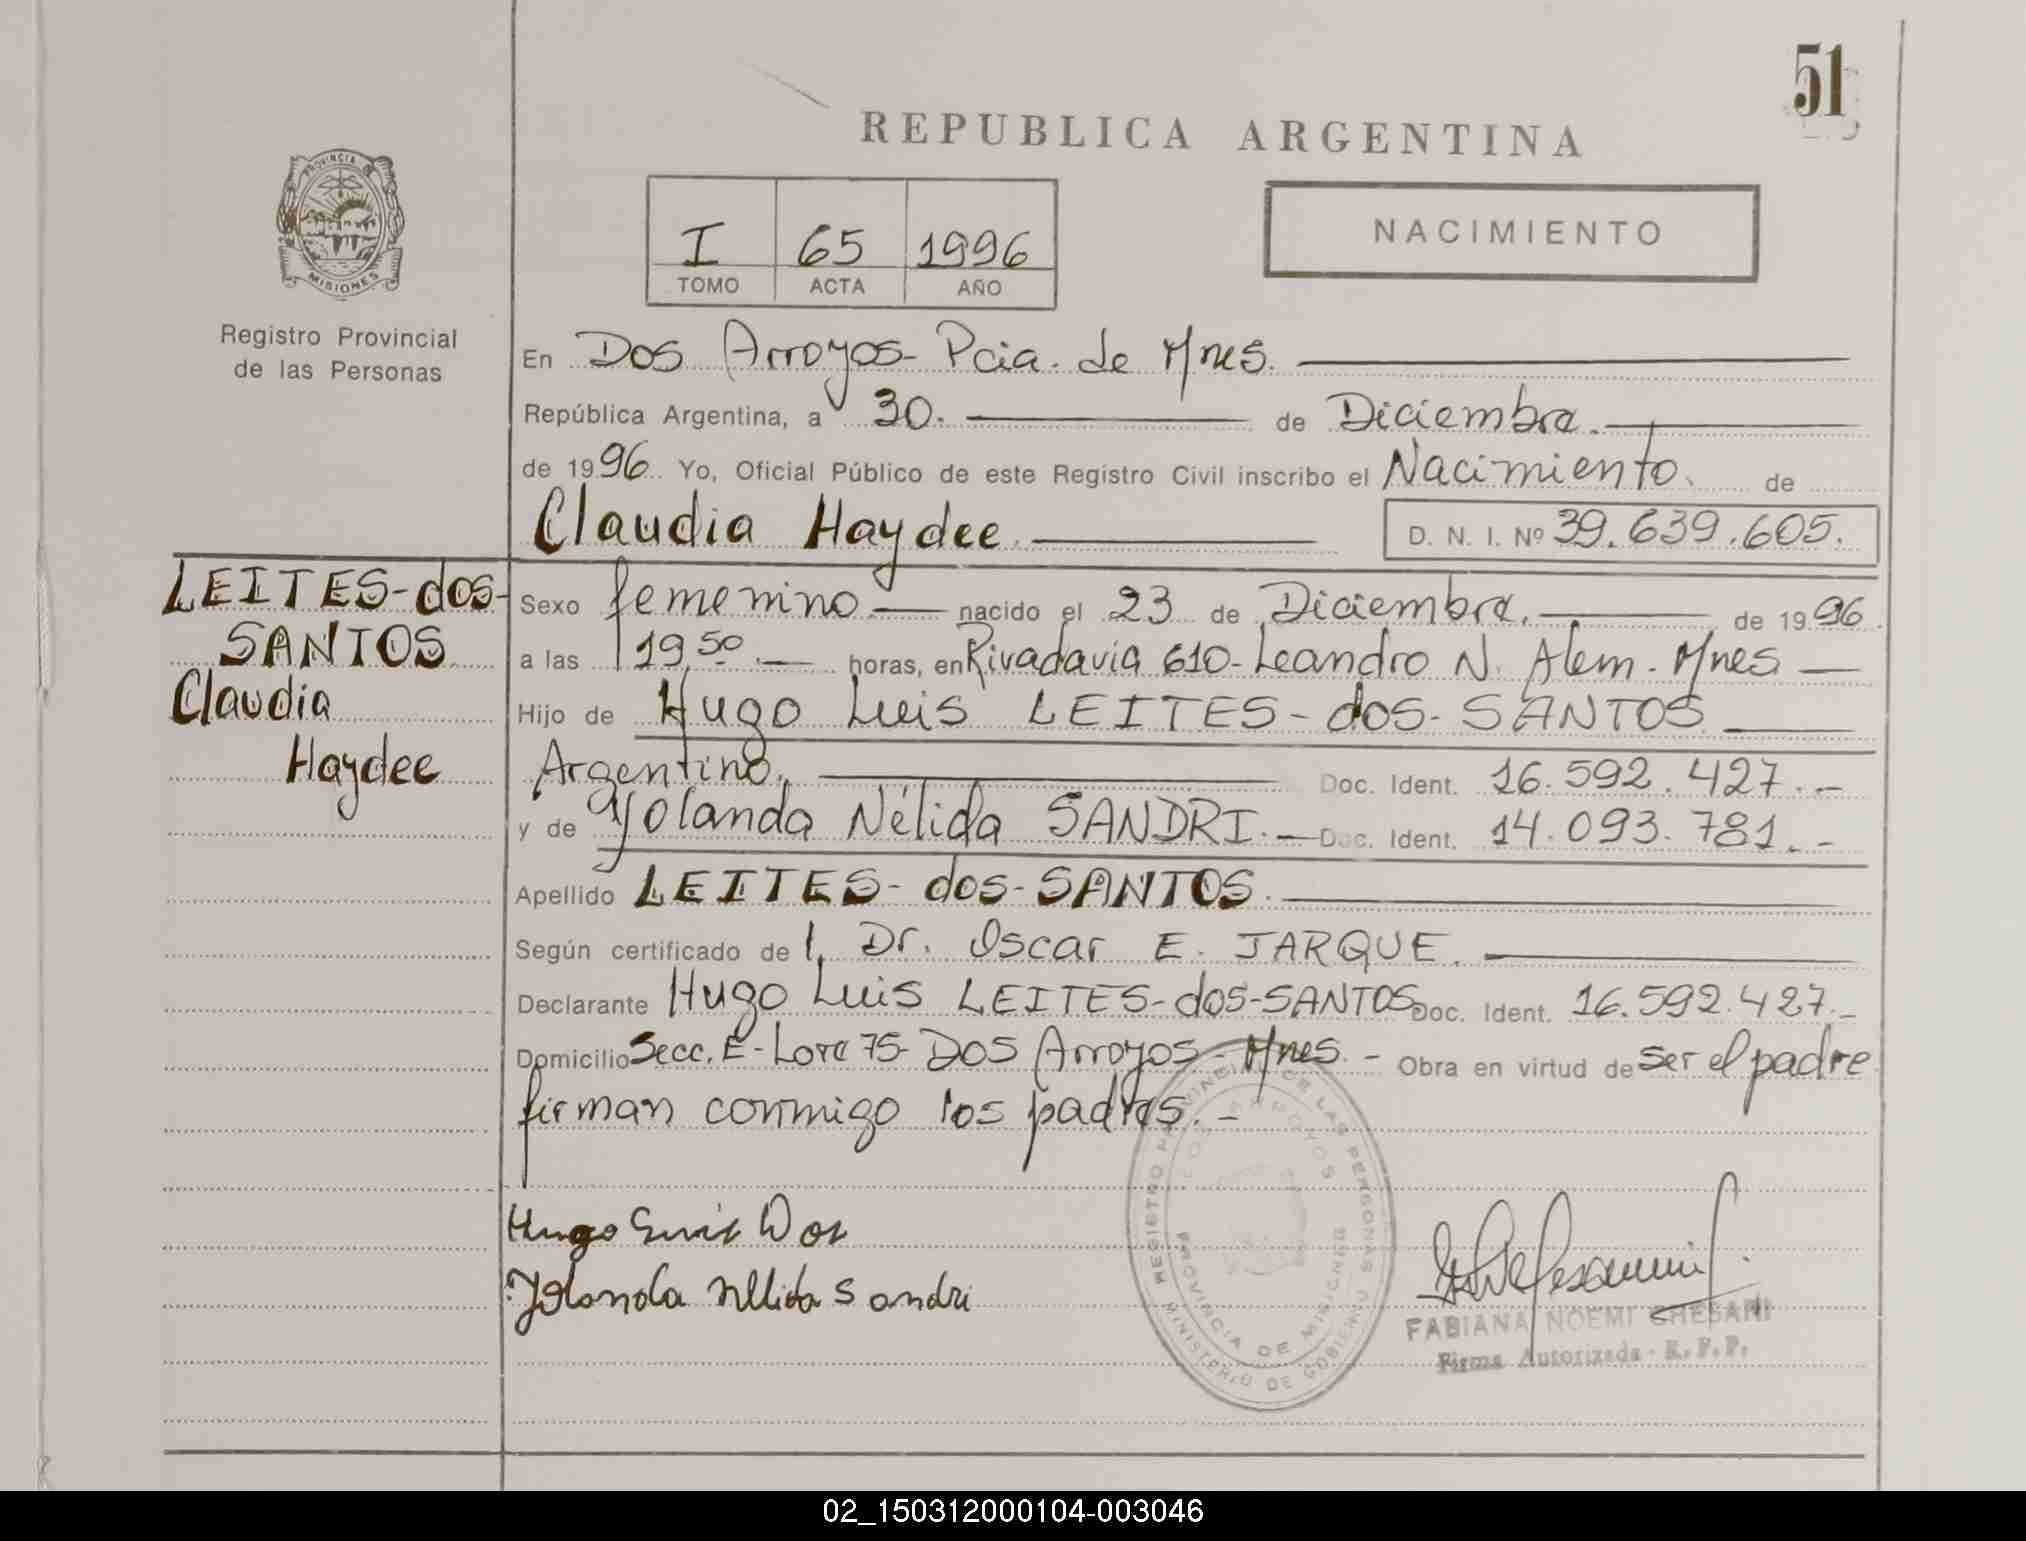 51
REPUBLICA ARGENTINA
PROVINCIA DE MISIONES
Registro Provincial
de las Personas
I 65 1996
TOMO ACTA AÑO
NACIMIENTO
En Dos Arroyos- Pcia. de Mnes.
República Argentina, a 30. de Diciembre.
de 1996 Yo, Oficial Público de este Registro Civil inscribo el Nacimiento. de
Claudia Haydee. D. N. I. Nº 39.639.605.
LEITES-dos-
SANTOS
Claudia
Haydee
Sexo femenino nacido el 23 de Diciembre. de 1996
a las 19,50 horas, en Rivadavia 610- Leandro N. Alem- Mnes
Hijo de Hugo Luis LEITES-dos-SANTOS
Argentino. Doc. Ident. 16.592.427.-
y de Yolanda Nélida SANDRI.- Doc. Ident. 14.093.781.-
Apellido LEITES-dos-SANTOS.
Según certificado de l, Dr. Oscar E. JARQUE.
Declarante Hugo Luis LEITES-dos-SANTOS Doc. Ident. 16.592.427.-
Domicilio Secc. E- Lote 75- Dos Arroyos- Mnes.- Obra en virtud de ser el padre
firman conmigo los padres.-
Hugo Luis Dos
Yolanda Nélida Sandri
REGISTRO PROVINCIAL DE LAS PERSONAS
MINISTERIO DE GOBIERNO
DOS ARROYOS
PROVINCIA DE MISIONES
FABIANA NOEMI GHESANI
Firma Autorizada - R. P. P.
02_150312000104-003046